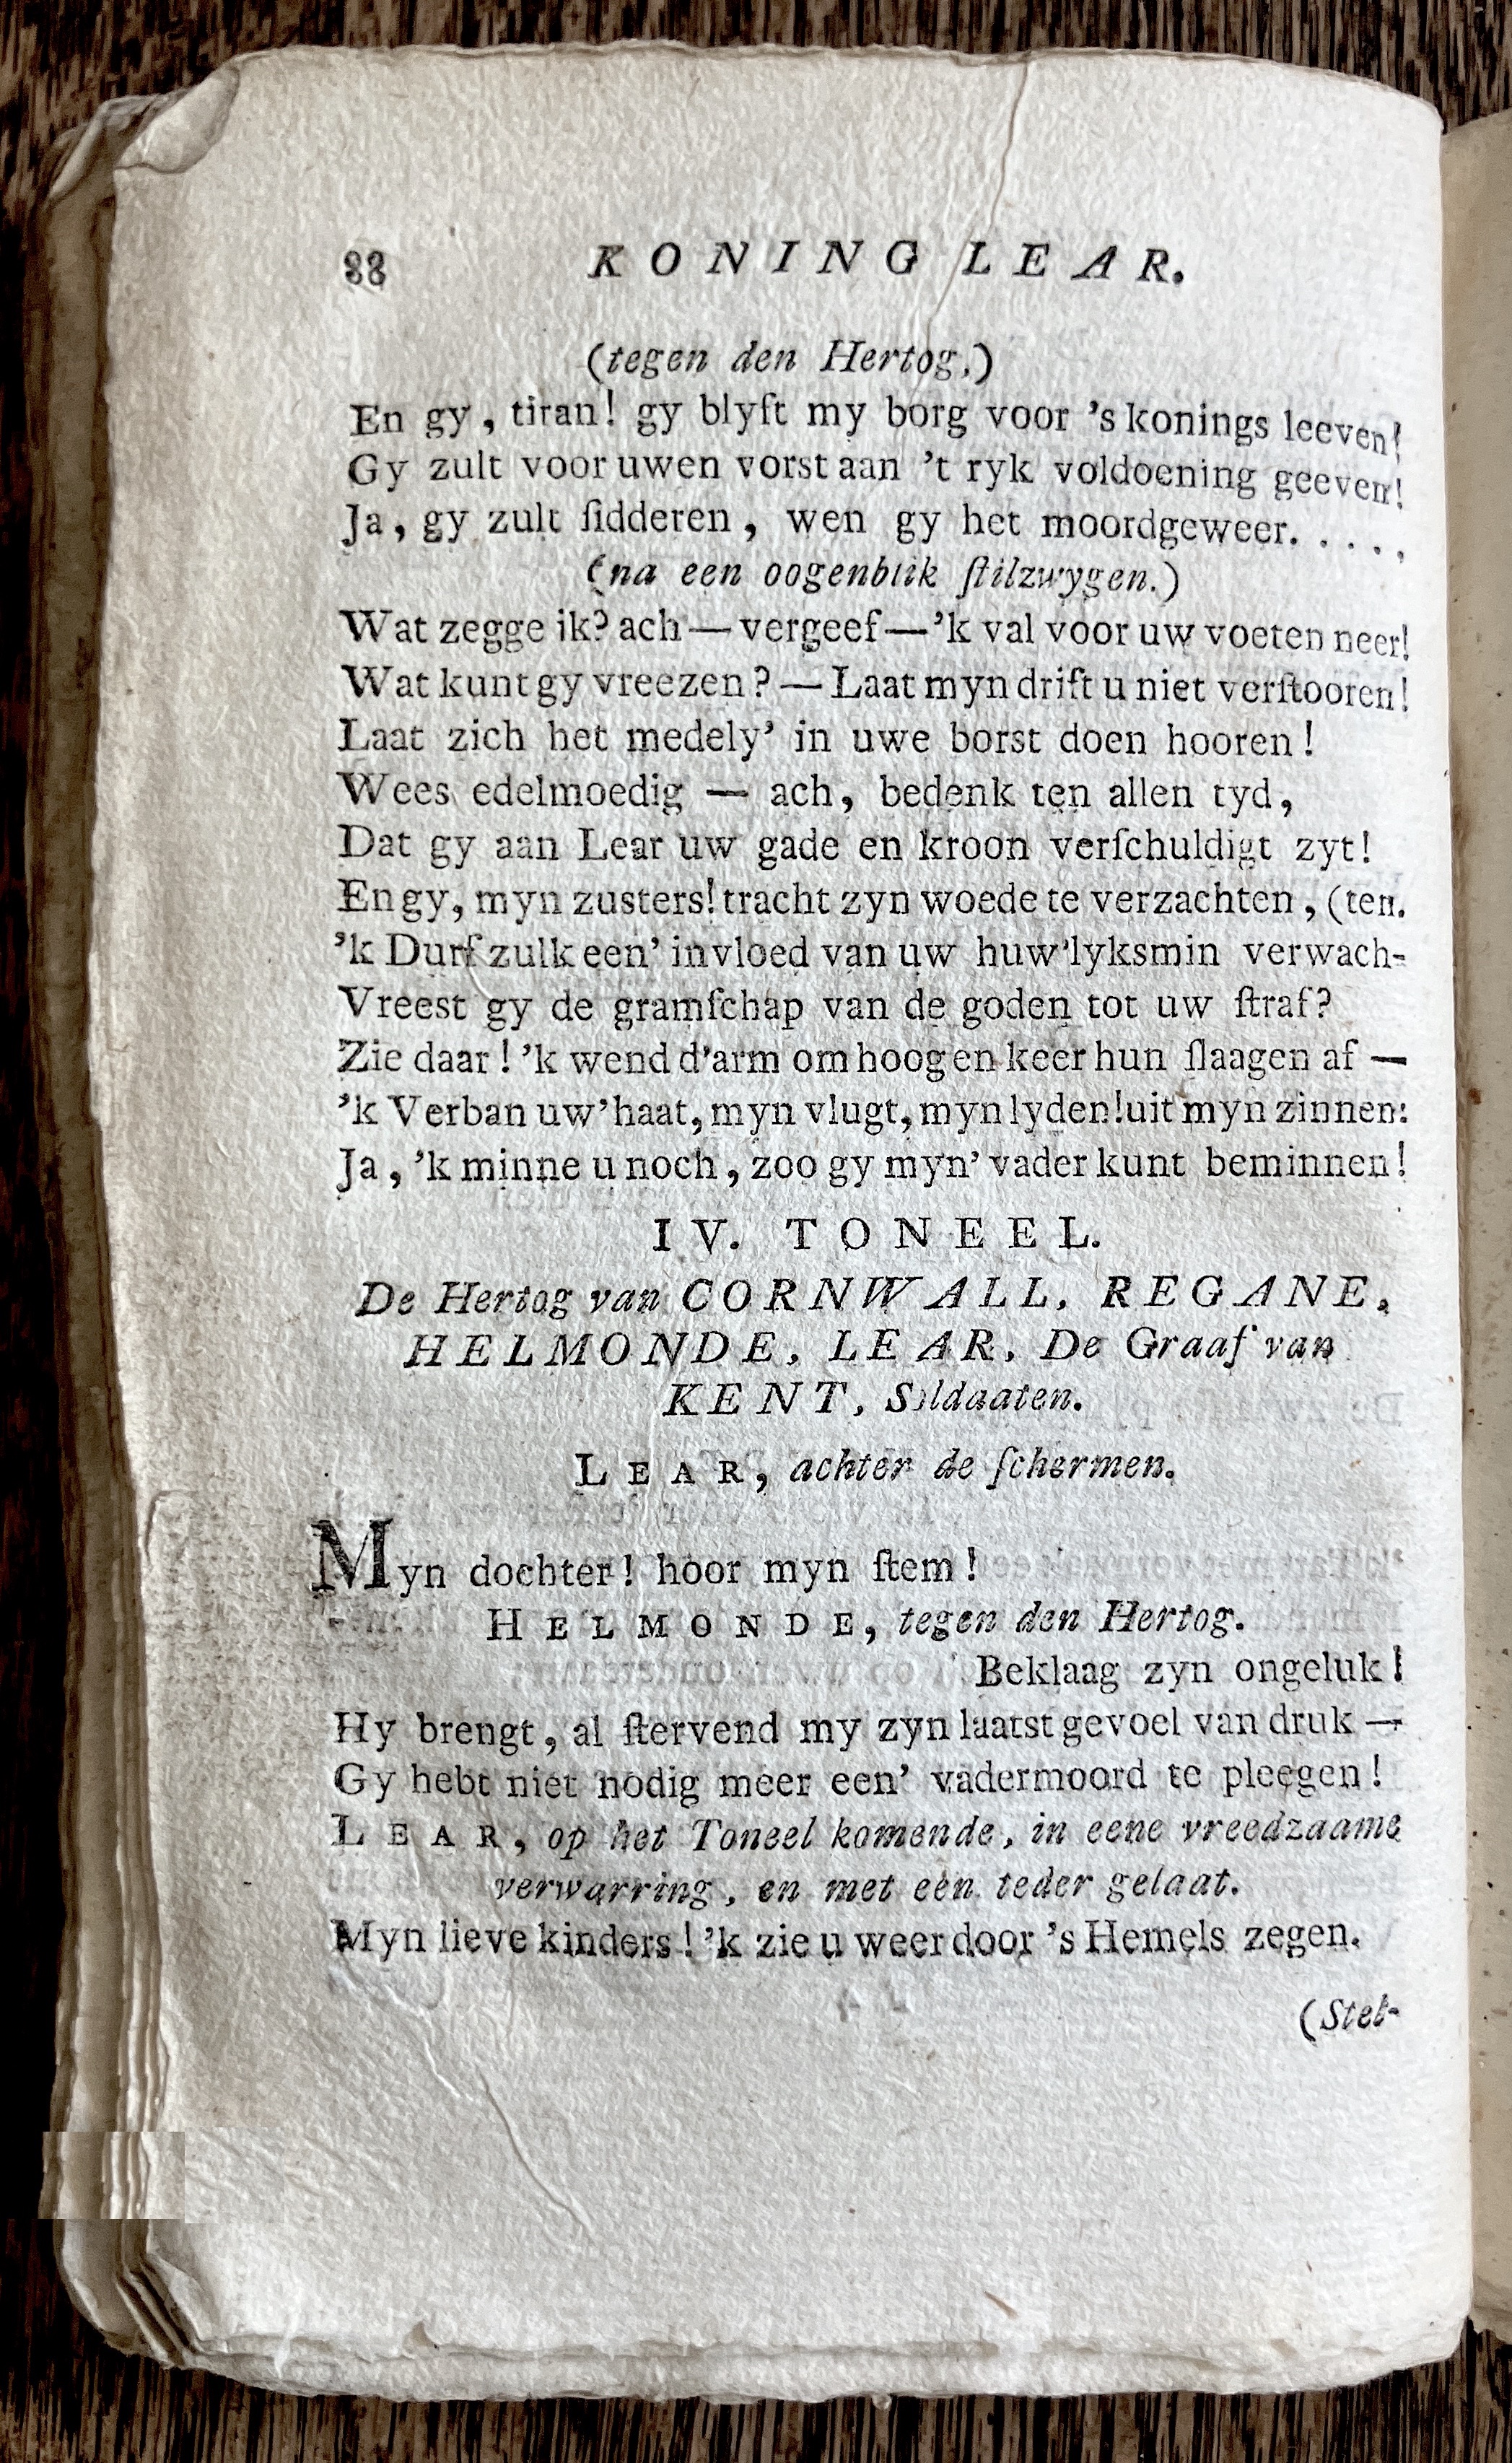 88 KONING LEAR.
(tegen den Hertog.)
En gy, tiran! gy blyft my borg voor 's konings leeven!
Gy zult voor uwen vorst aan 't ryk voldoening geeven!
Ja, gy zult ſidderen, wen gy het moordgeweer. . . . .
(na een oogenblik ſtilzwygen.)
Wat zegge ik? ach — vergeef — 'k val voor uw voeten neer!
Wat kunt gy vreezen? — Laat myn drift u niet verſtooren!
Laat zich het medely' in uwe borst doen hooren!
Wees edelmoedig — ach, bedenk ten allen tyd,
Dat gy aan Lear uw gade en kroon verſchuldigt zyt!
En gy, myn zusters! tracht zyn woede te verzachten, (ten.
'k Durf zulk een' invloed van uw huw'lyksmin verwach-
Vreest gy de gramſchap van de goden tot uw ſtraf?
Zie daar! 'k wend d'arm om hoog en keer hun ſlaagen af —
'k Verban uw' haat, myn vlugt, myn lyden! uit myn zinnen:
Ja, 'k minne u noch, zoo gy myn' vader kunt beminnen!
IV. TONEEL.
De Hertog van CORNWALL, REGANE,
HELMONDE, LEAR, De Graaf van
KENT, Soldaaten.
LEAR, achter de ſchermen.
Myn dochter! hoor myn ſtem!
HELMONDE, tegen den Hertog.
Beklaag zyn ongeluk!
Hy brengt, al ſtervend my zyn laatst gevoel van druk —
Gy hebt niet nodig meer een' vadermoord te pleegen!
LEAR, op het Toneel komende, in eene vreedzaame
verwarring, en met een teder gelaat.
Myn lieve kinders! 'k zie u weer door 's Hemels zegen.
(Stel-